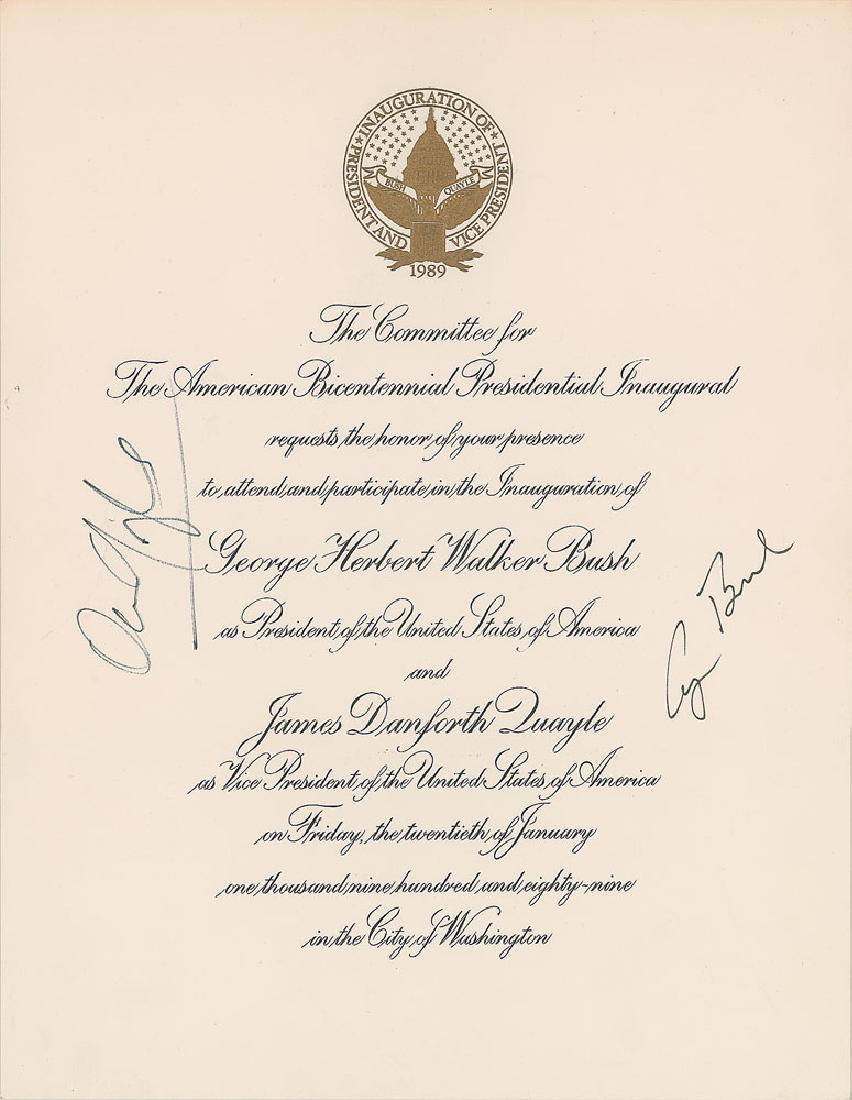 ★ INAUGURATION OF ★
PRESIDENT AND VICE PRESIDENT
BUSH QUAYLE
1989
The Committee for
The American Bicentennial Presidential Inaugural
requests the honor of your presence
to attend and participate in the Inauguration of
George Herbert Walker Bush
as President of the United States of America
and
James Danforth Quayle
as Vice President of the United States of America
on Friday, the twentieth of January
one thousand nine hundred and eighty-nine
in the City of Washington
Dan Quayle
G Bush